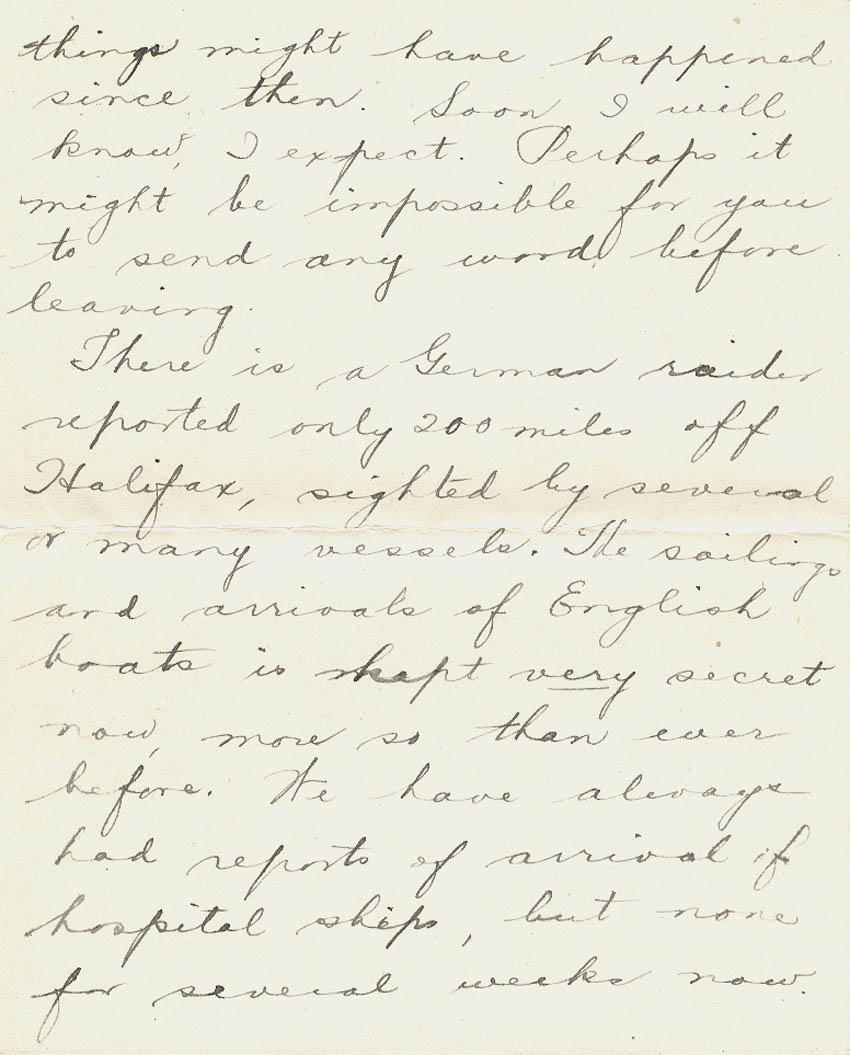 things might have happened
since then. Soon I will
know, I expect. Perhaps it
might be impossible for you
to send any word before
leaving.
There is a German raider
reported only 200 miles off
Halifax, sighted by several
or many vessels. The sailings
and arrivals of English
boats is kept very secret
now, more so than ever
before. We have always
had reports of arrival of
hospital ships, but none
for several weeks now.